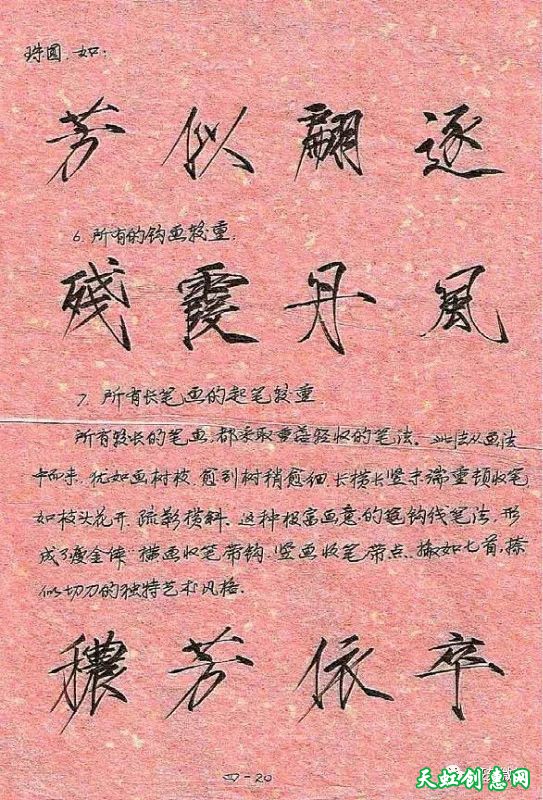 珠圆，如：
芳似翩逐
6. 所有的钩画较重。
残霞丹風
7. 所有长笔画的起笔较重
所有较长的笔画，都采取重落轻收的笔法。此法从画法
中而来，犹如画树枝，愈到树稍愈细，长横长竖末端重顿收笔
如枝头花开，疏影横斜。这种极富画意的笔钩线笔法，形
成了“瘦金体”横画收笔带钩，竖画收笔带点，撇如匕首，捺
似切刀的独特艺术风格。
穠芳依翠
四-20
天虹创惠网